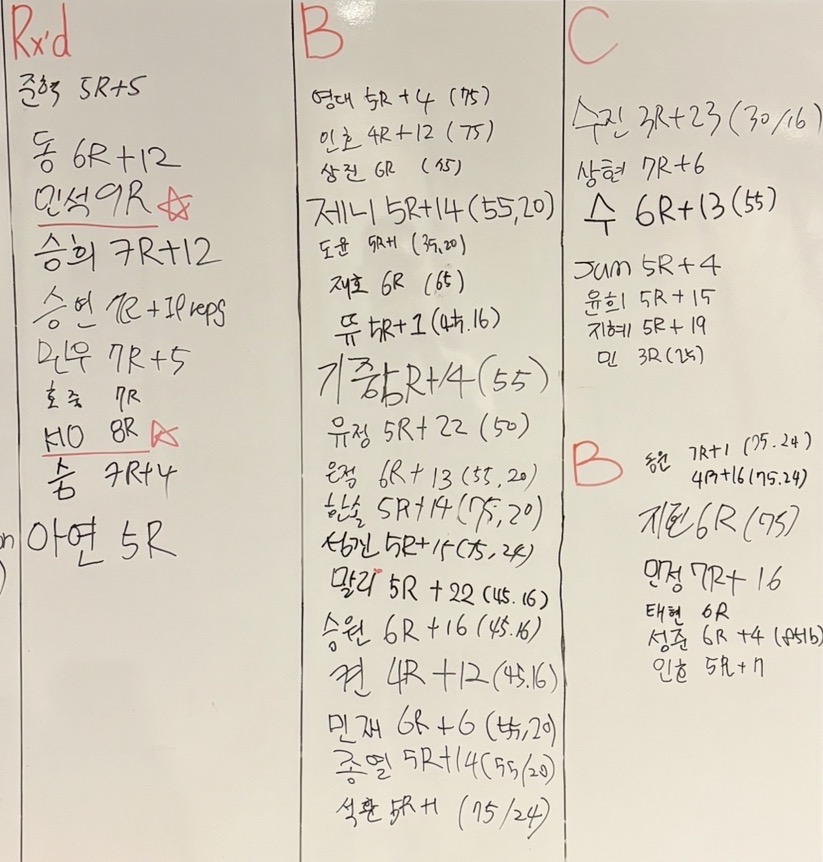 Rx'd
준혁 5R+5
동 6R+12
민석 9R
승희 7R+12
승연 7R+11 reps
민우 7R+5
호중 7R
KIO 8R
숨 7R+4
아연 5R
B
영대 5R+4 (75)
인호 4R+12 (75)
상진 6R (75)
제니 5R+14 (55,20)
도윤 5R+1 (35,20)
재호 6R (65)
뜌 5R+1 (45.16)
기중 5R+14 (55)
유정 5R+22 (50)
은적 6R+13 (55,20)
한솔 5R+14 (75,20)
성진 5R+15 (75,24)
말리 5R+22 (45.16)
승원 6R+16 (45.16)
켠 4R+12 (45.16)
민재 6R+6 (55,20)
종열 5R+14 (55/20)
석환 5R+1 (75/24)
C
수진 3R+23 (30/16)
상현 7R+6
수 6R+13 (55)
Jum 5R+4
윤희 5R+15
지혜 5R+19
민 3R (25)
B
7R+1 (75.24)
4R+16 (75.24)
지현 6R (75)
민정 7R+16
태현 6R
성준 6R+4
인호 5R+7